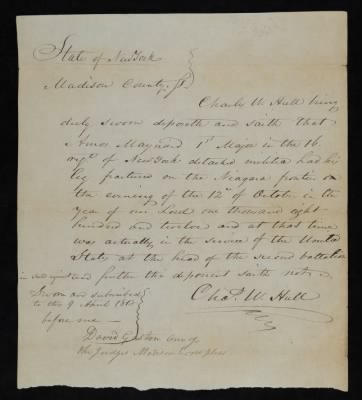 State of New York
Madison County, Ss.
Charles W. Hull being
duly sworn deposeth and saith that
Amos Maynard 1st Major in the 16
regt of New York detached militia had his
leg fractured on the Niagara frontier on
the evening of the 12th of October in the
year of our Lord one thousand eight
hundred and twelve and at that time
was actually in the service of the United
States at the head of the second battalion
in said regiment and further the deponent saith not.
Sworn and subscribed
to this 9 April 1813
before me
Chas. W. Hull
David one of
the Judges Madison Com pleas